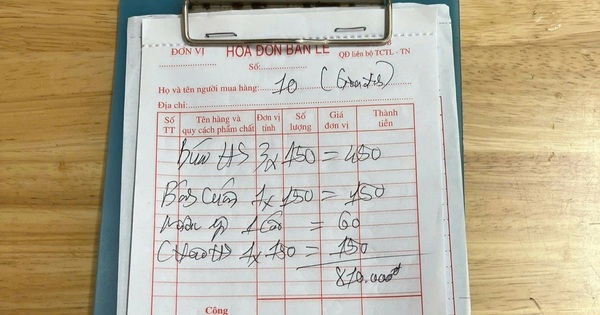 ĐƠN VỊ
HÓA ĐƠN BÁN LẺ
QĐ liên bộ TCTL - TN
Số:
Họ và tên người mua hàng: 10
Địa chỉ:
Số TT Tên hàng và quy cách phẩm chất Đơn vị tính Số lượng Giá đơn vị Thành tiền
Bún HS 3 x 150 = 450
Bánh Cuốn 1 x 150 = 150
= 60
Cháo HS 1 x 150 = 150
810.000đ
Cộng